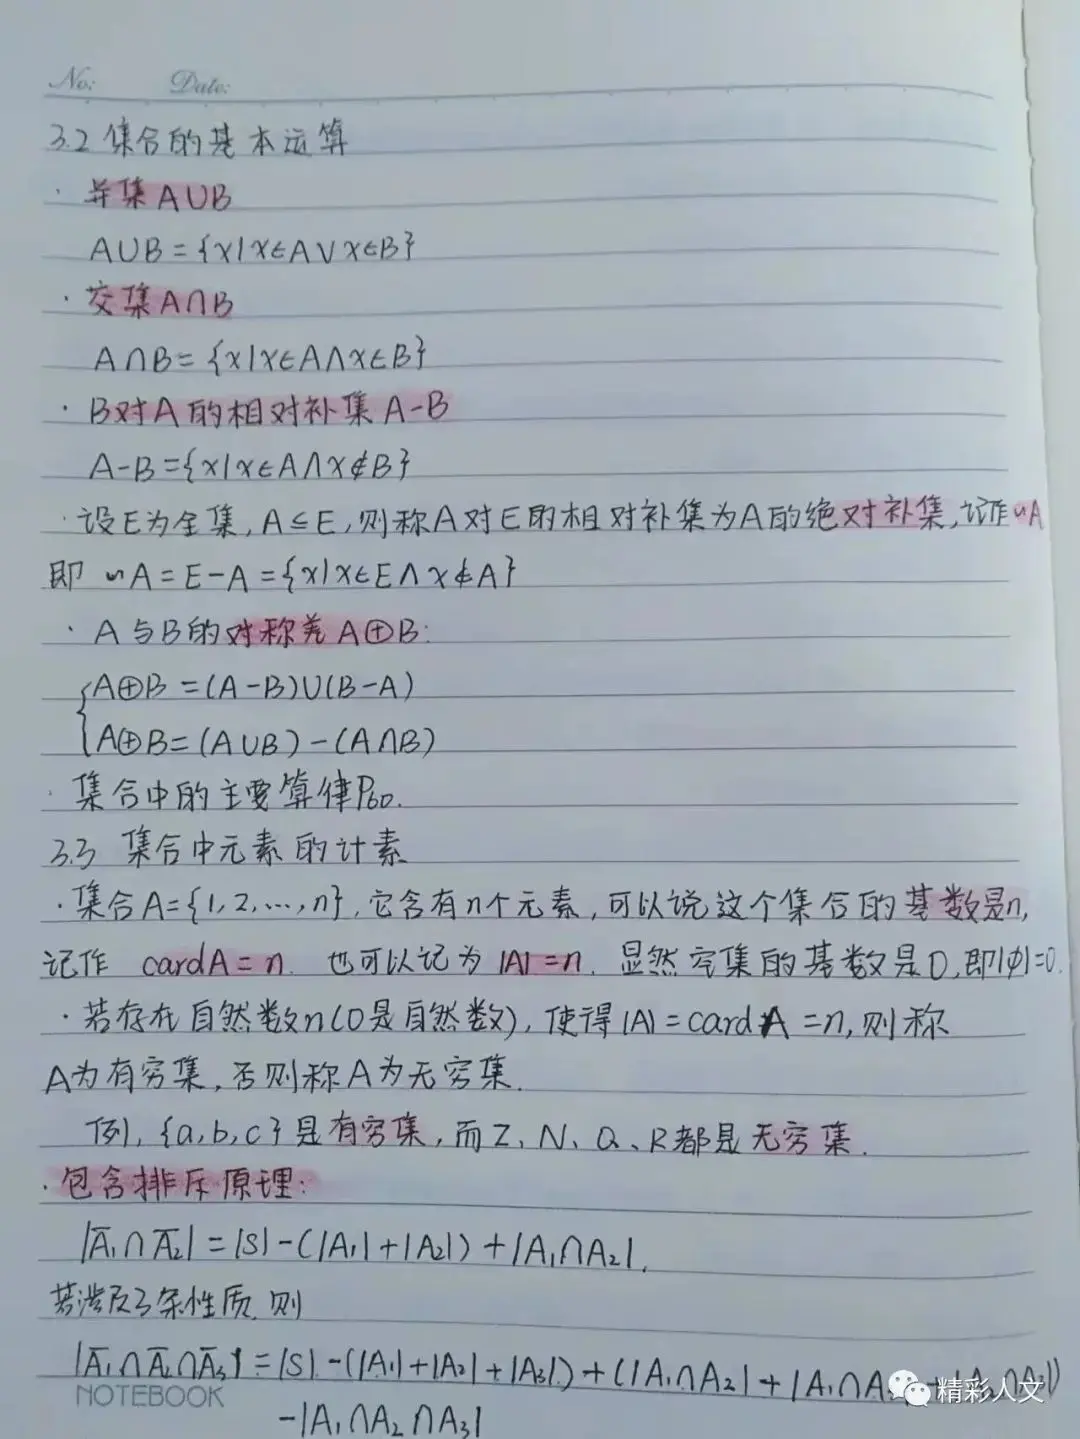 No:    Date:
3.2 集合的基本运算
· 并集A∪B
A∪B={x|x∈A∨x∈B}
· 交集A∩B
A∩B={x|x∈A∧x∈B}
· B对A的相对补集A-B
A-B={x|x∈A∧x∉B}
· 设E为全集,A⊆E,则称A对E的相对补集为A的绝对补集,记作~A
即 ~A=E-A={x|x∈E∧x∉A}
· A与B的对称差A⊕B:
A⊕B=(A-B)∪(B-A)
A⊕B=(A∪B)-(A∩B)
· 集合中的主要算律P60.
3.3 集合中元素的计素
· 集合A={1,2,…,n},它含有n个元素,可以说这个集合的基数是n,
记作 cardA=n. 也可以记为|A|=n. 显然空集的基数是0,即|∅|=0.
· 若存在自然数n(0是自然数),使得|A|=cardA=n,则称
A为有穷集,否则称A为无穷集.
例,{a,b,c}是有穷集,而Z、N、Q、R都是无穷集.
· 包含排斥原理:
|A̅₁∩A̅₂|=|S|-(|A₁|+|A₂|)+|A₁∩A₂|.
若涉及3条性质,则
|A̅₁∩A̅₂∩A̅₃|=|S|-(|A₁|+|A₂|+|A₃|)+(|A₁∩A₂|+|A₁∩A
NOTEBOOK
精彩人文
-|A₁∩A₂∩A₃|